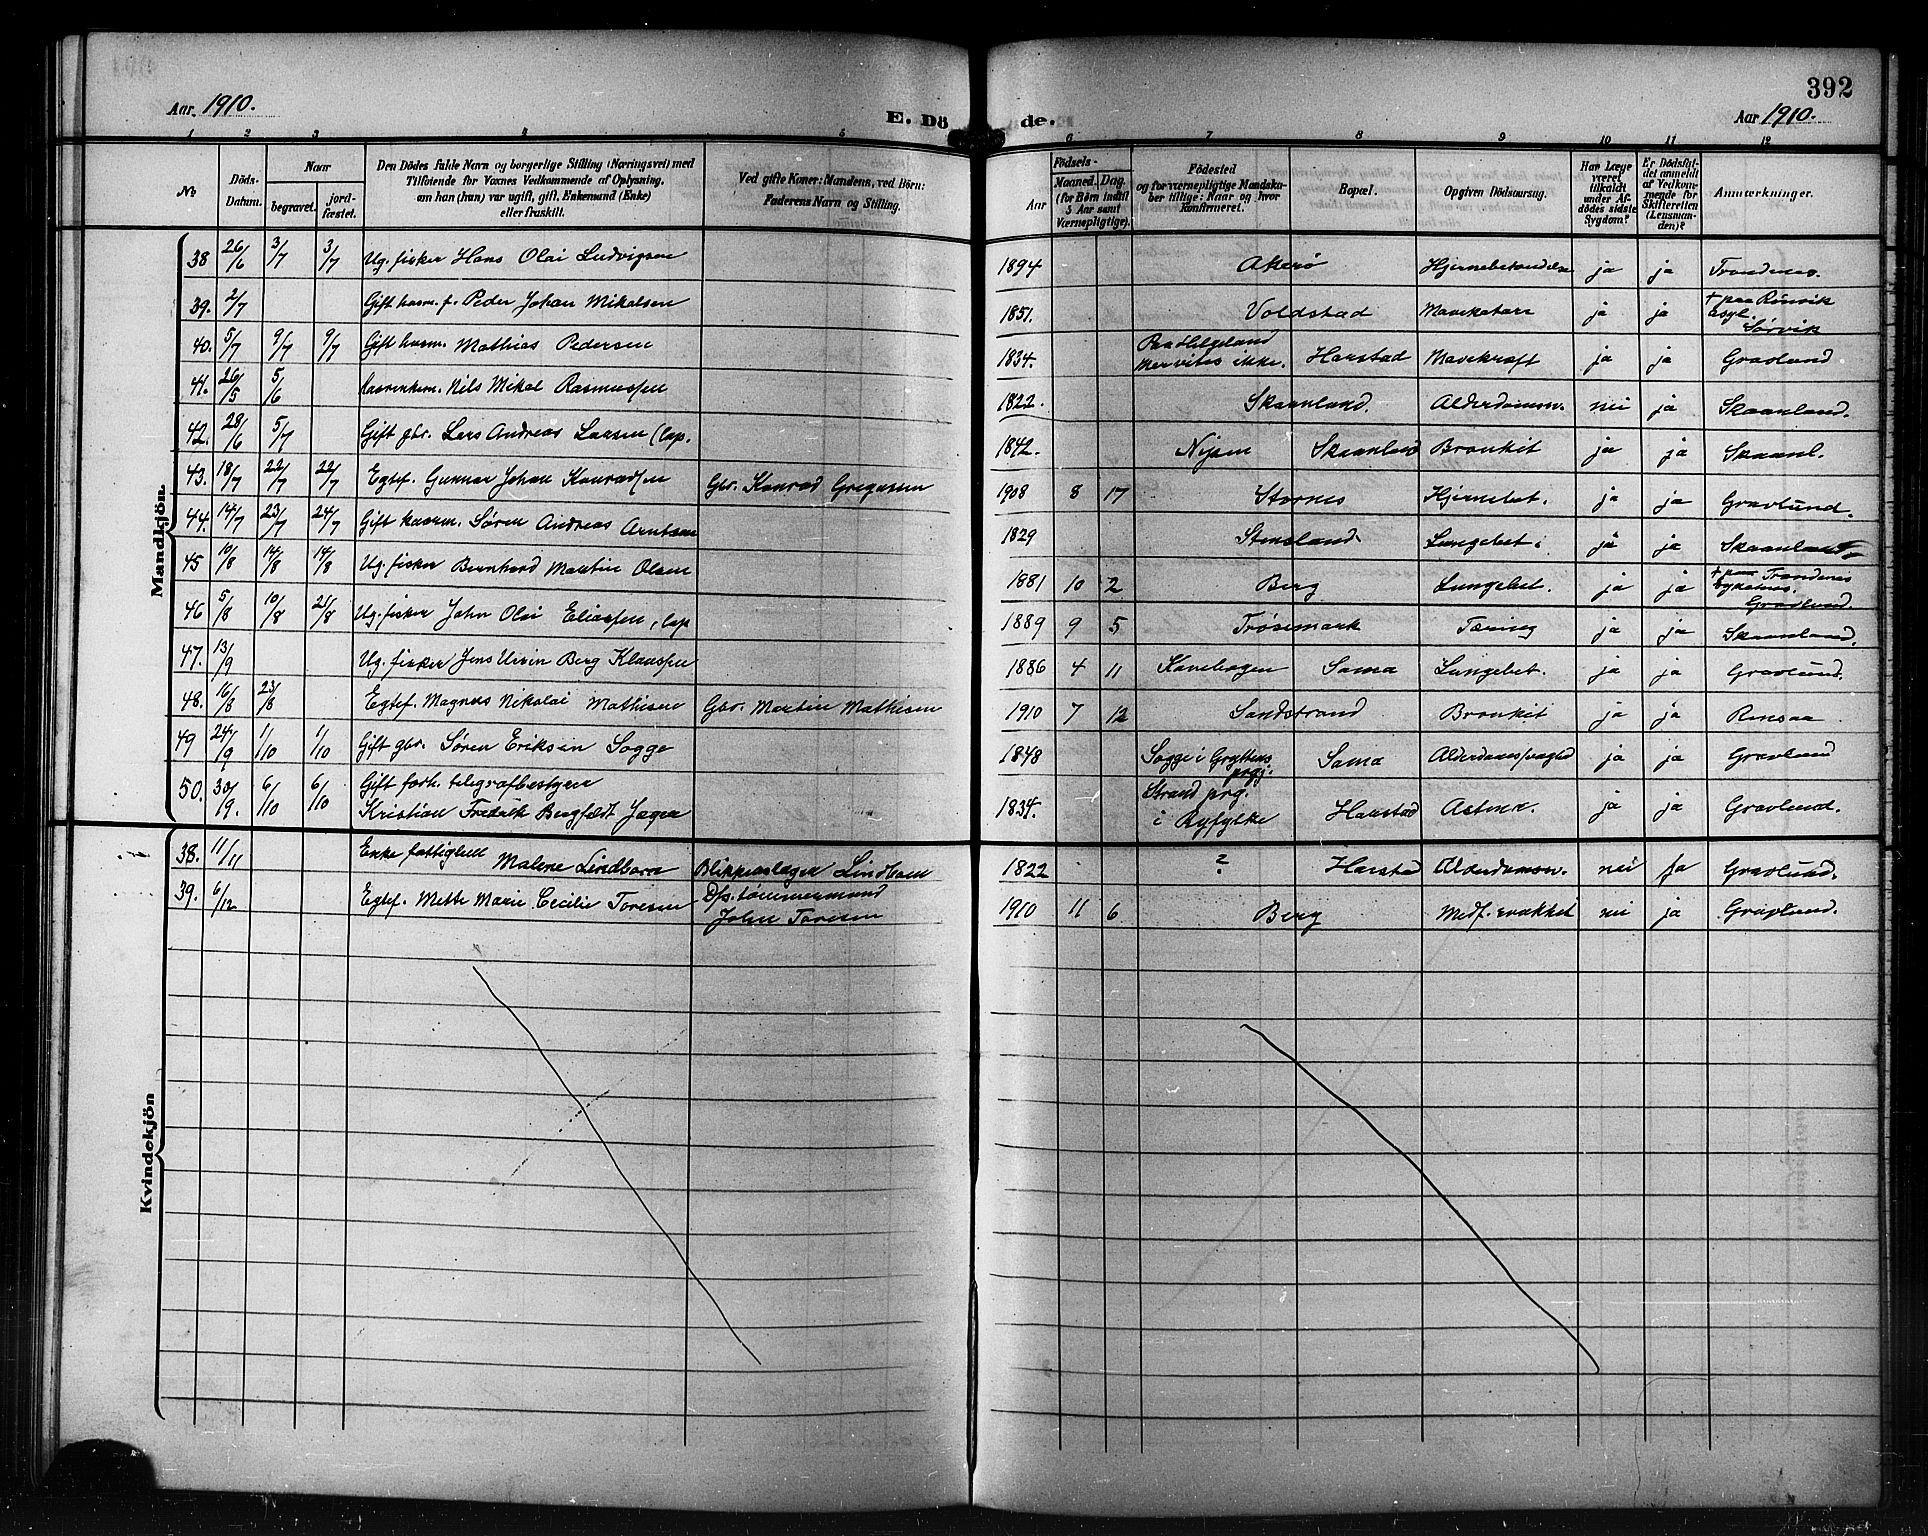 392
Aar 1910.
E. Dö de.
Aar 1910.
1 2 3 4 5 6 7 8 9 10 11 12
No
Döds-Datum.
Naar
begravet.
jord-fæstet.
Den Dödes fulde Navn og borgerlige Stilling (Næringsvei) med
Tilföiende for Voxnes Vedkommende af Oplysning,
om han (hun) var ugift, gift, Enkemand (Enke)
eller fraskilt.
Ved gifte Koner: Mandens, ved Börn:
Faderens Navn og Stilling.
Födsels-
Aar
Maaned. Dag.
(for Børn indtil
5 Aar samt
Værnepligtige).
Födested
og for værnepligtige Mandska-
ber tillige: Naar og hvor
Konfirmeret.
Bopæl.
Opgiven Dödsaarsag.
Har Læge
været
tilkaldt
under Af-
dödes sidste
Sygdom?
Er Dödsfal-
det anmeldt
af Vedkom-
mende for
Skifteretten
(Lensman-
den)?
Anmærkninger.
Mandkjön.
38 26/6 3/7 3/7 Ug. fisker Hans Olai Ludvigsen 1894 Akerø Hjernebetændelse ja ja Trondenes.
39. 2/7 Gift husm. f. Peder Johan Mikalsen 1851. Voldstad Mavekatarr ja ja + paa Rinvik
asyl.
Sørvik
40. 5/7 9/7 9/7 Gift husm. Mathias Pedersen 1834. Paa Helgeland
mer vites ikke. Harstad Mavekræft ja ja Gravlund
41. 26/5 5/6 Nils Mikal Rasmussen 1822. Skaanland. Alderdomssv. nei ja Skaanland.
42. 28/6 5/7 Gift gbr. Lars Andreas Larsen (lap. 1842. Skaanland Bronkit ja ja Skaanl.
43. 18/7 22/7 22/7 Egtef. Gunnar Johan Konradsen Gbr. Konrad Gregusen 1908 8 17 Stornes Hjernebet. ja ja Gravlund.
44. 14/7 23/7 24/7 Gift kaarm. Søren Andreas Arntsen 1829 Stensland Lungebet. ja ja Skaanland
45 10/8 14/8 14/8 Ug. fisker Bernhard Martin Olsen 1881 10 2 Berg Lungebet. ja ja + paa Trondenes
sykehus.
Gravlund.
46 5/8 10/8 21/8 Ug. fisker John Olai Eliassen, lap 1889 9 5 Trøsemark Tæring ja ja Skaanland.
47. 13/9 Ug. fisker Jens Urvin Berg Klaussen 1886 4 11 Kanebogen Sama Lungebet. ja ja Gravlund.
48. 16/8 23/8 Egtef. Magnus Nikolai Mathisen Gbr. Martin Mathisen 1910 7 12 Sandstrand Bronkit ja ja Rensaa
49 24/9 1/10 1/10 Gift gbr. Søren Eriksen Sogge 1848 Sogge i Gryttens
prgj. Sama Alderdomssvaghed ja ja Gravlund
50. 30/9. 6/10 6/10 Gift forh. telegrafbestyrer
Kristian Fredrik Bergfeldt Jager 1834. Strand prg.
i Ryfylke Harstad Astma. ja ja Gravlund.
Kvindekjön
38. 11/11 Enke fattiglem Malene Lindbom Blikkenslager Lindbom 1822 ? Harstad Alderdomssv. nei ja Gravlund.
39. 6/12 Egtef. Mette Marie Cecilie Toresen D/s. tømmermand
John Toresen 1910 11 6 Berg Medf. svakhet nei ja Gravlund.